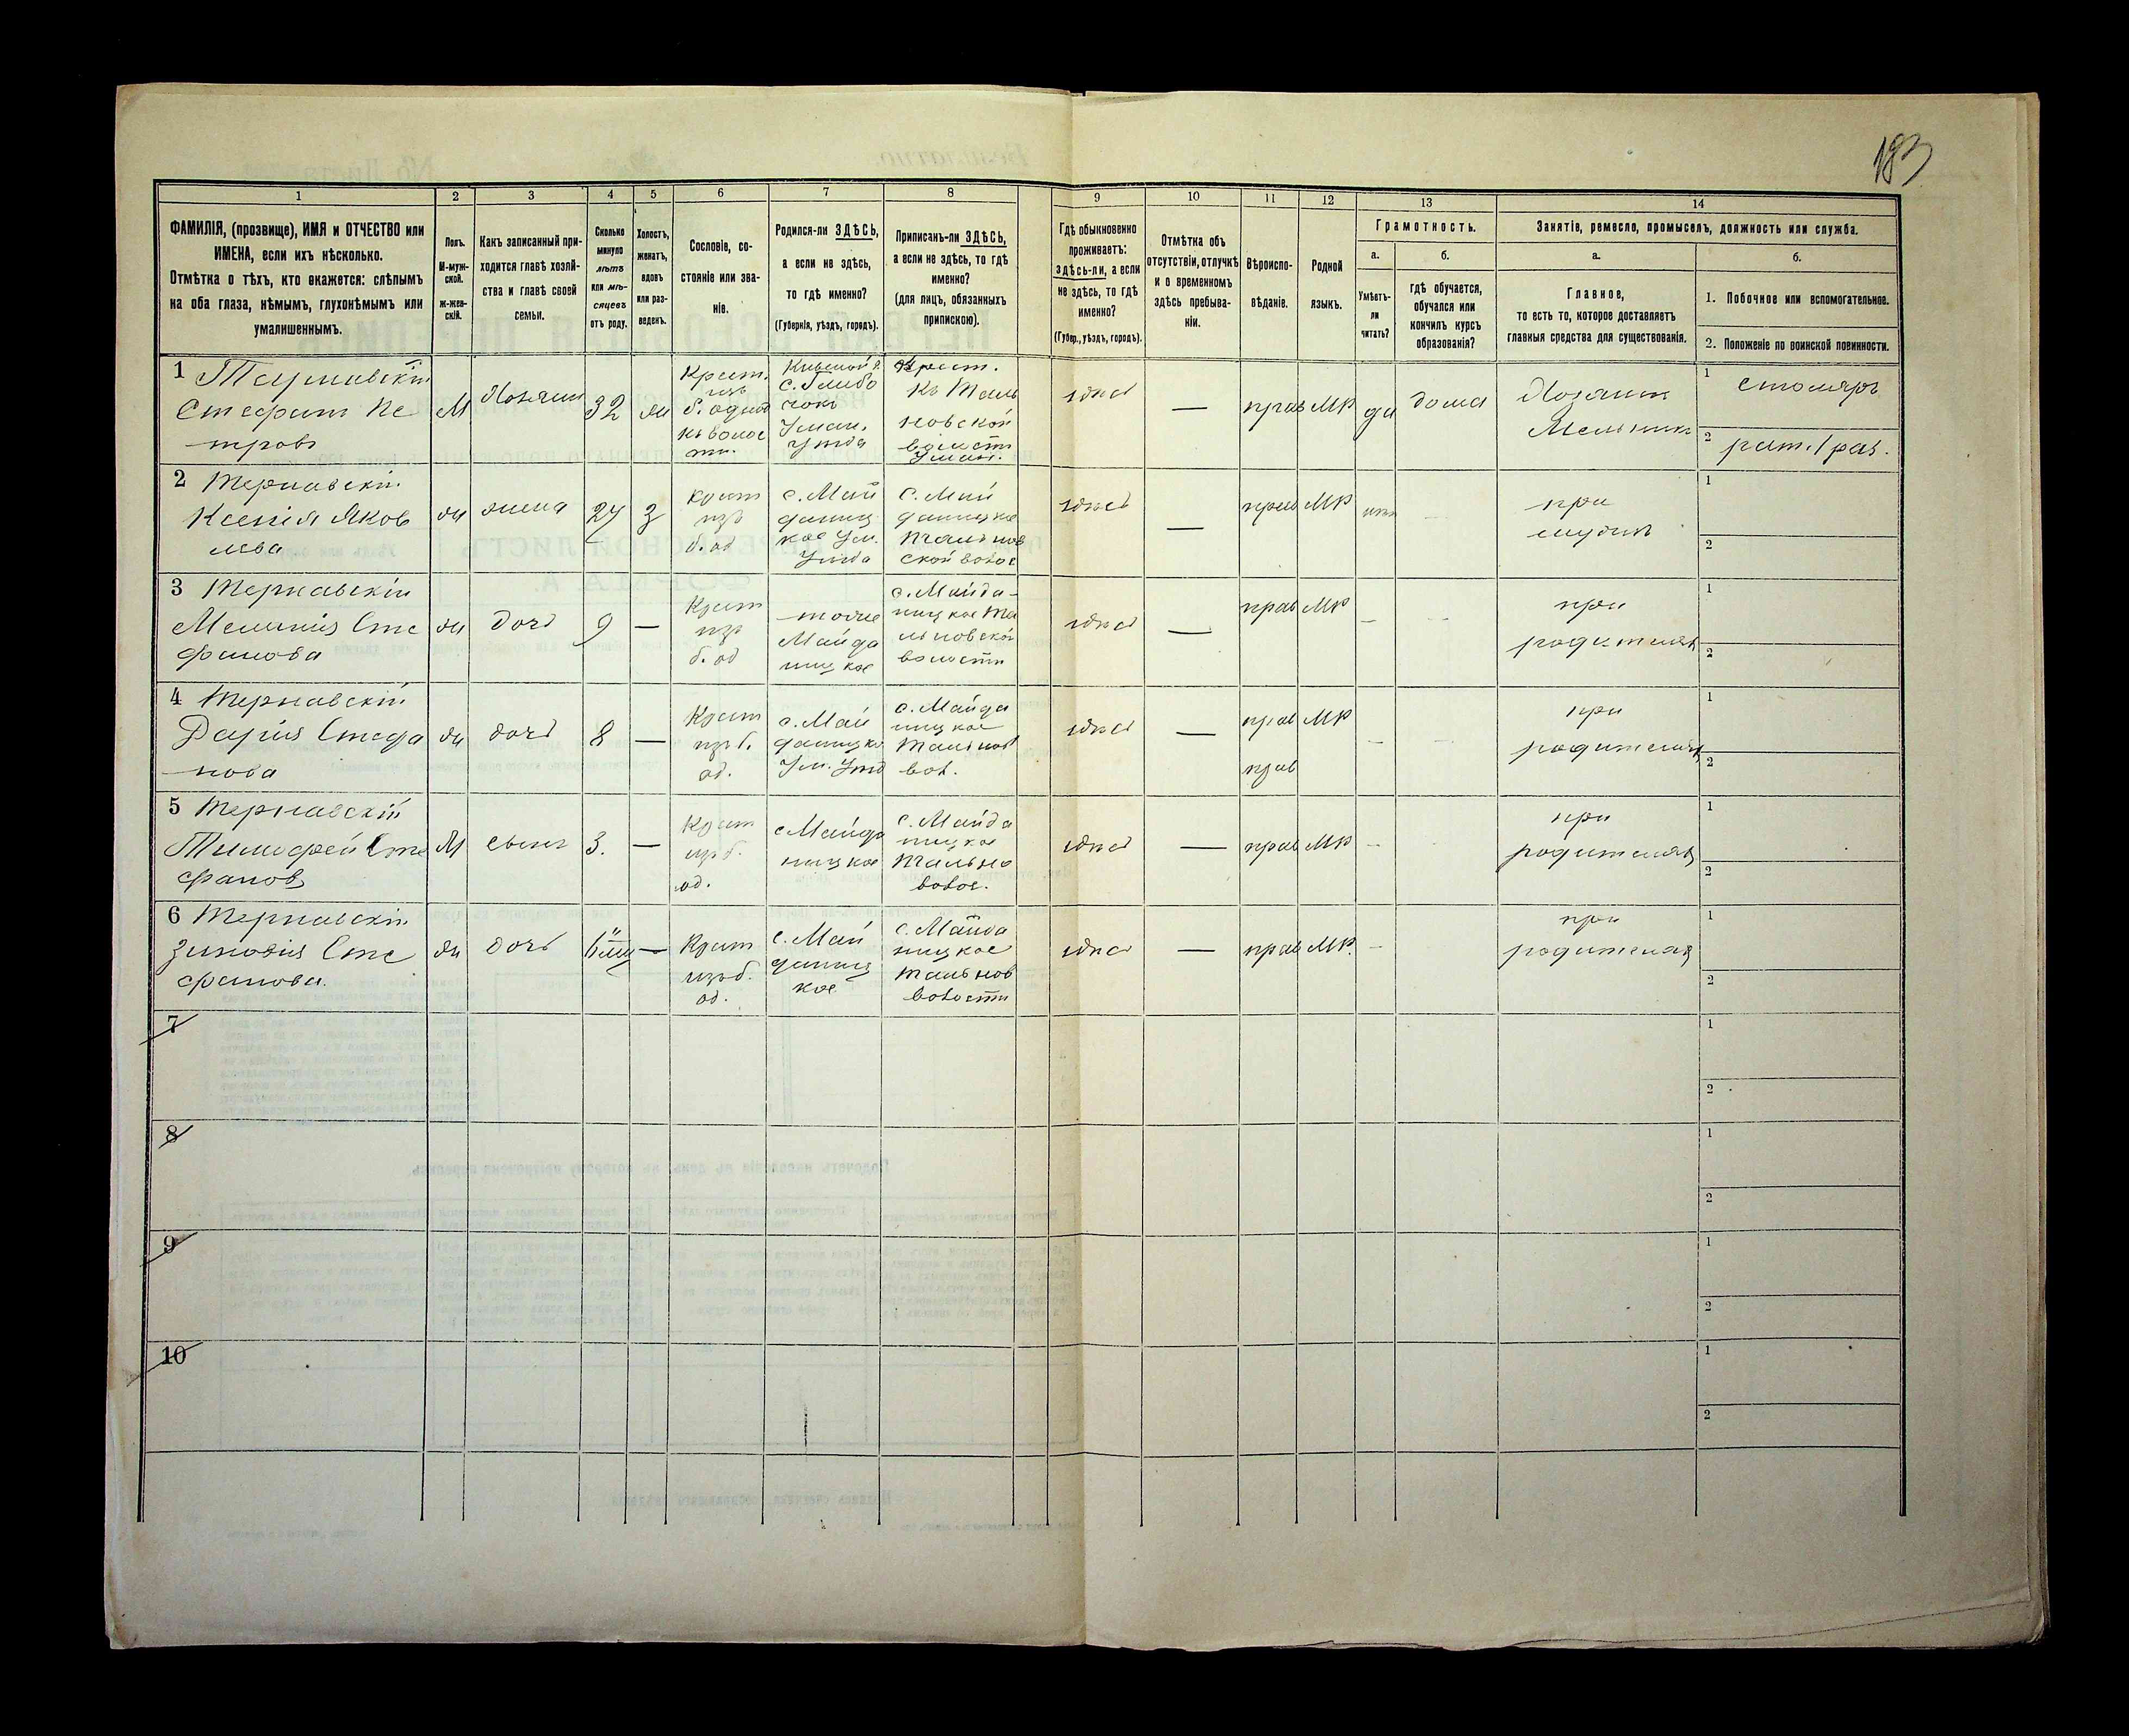 183
1
2
3
4
5
6
7
8
9
10
11
12
13
14
ФАМИЛІЯ, (прозвище), ИМЯ и ОТЧЕСТВО или
ИМЕНА, если ихъ нѣсколько.
Отмѣтка о тѣхъ, кто окажется: слѣпымъ
на оба глаза, нѣмымъ, глухонѣмымъ или
умалишеннымъ.
Полъ.
М-муж-
ской.
ж-жен-
скій.
Какъ записанный при-
ходится главѣ хозяй-
ства и главѣ своей
семьи.
Сколько
минуло
лѣтъ
или мѣ-
сяцевъ
отъ роду.
Холостъ,
женатъ,
вдовъ
или раз-
веденъ.
Сословіе, со-
стояніе или зва-
ніе.
Родился-ли ЗДѢСЬ,
а если не здѣсь,
то гдѣ именно?
(Губернія, уѣздъ, городъ).
Приписанъ-ли ЗДѢСЬ,
а если не здѣсь, то гдѣ
именно?
(для лицъ, обязанныхъ
припискою).
Гдѣ обыкновенно
проживаетъ:
здѣсь-ли, а если
не здѣсь, то гдѣ
именно?
(Губер., уѣздъ, городъ).
Отмѣтка объ
отсутствіи, отлучкѣ
и о временномъ
здѣсь пребыва-
ніи.
Вѣроиспо-
вѣданіе.
Родной
языкъ.
Грамотность.
а.
Умѣетъ-
ли
читать?
б.
гдѣ обучается,
обучался или
кончилъ курсъ
образованія?
Занятіе, ремесло, промыселъ, должность или служба.
а.
Главное,
то есть то, которое доставляетъ
главныя средства для существованія.
б.
1. Побочное или вспомогательное.
2. Положеніе по воинской повинности.
1
Стефанъ Пе
тровъ
М
Хозяин
32
Крест.
изъ
с. Глибо
чокъ
Уман.
уѣзда
Крест.
къ Таль
новской
волости
Уман.
здѣсь
—
прав
МР
да
дома
Хозяинъ
Мельникъ
1 столяръ
2
2 Тернавскій
Ксенія Яков
лева
ж
жена
З
крест
изъ
б. од
с. Май
даниц
кое Ум.
уѣзда
с. Май
даницкое
Тальнов
ской волос
здѣсь
—
прав
МР
при
мужѣ
1
2
3 Тернавскій
Меланія Сте
фанова
ж
дочь
9
—
Крест
изъ
б. од
тоже
Майда
ницкое
с. Майда-
ницкое Та
льновской
волости
здѣсь
—
прав
МР
—
при
родителях
1
2
4 Тернавскій
Дарія Стефа
нова
ж
дочь
8
—
Крест
изъ б.
од.
с. Май
даницко
Ум. уѣзд
с. Майда
ницкое
Тальнов
вол.
здѣсь
—
прав
МР
прав
—
при
родителях
1
2
5 Тернавскій
Тимофей Сте
фановъ
М
сынъ
3.
—
Крест
изъ б.
од.
с Майда
ницкое
с. Майда
ницкое
Тально
волос.
здѣсь
—
прав
МР
—
при
родителях
1
2
6 Тернавскій
Зиновія Сте
фанова.
ж
дочь
—
Крест
изъ б.
од.
с. Май
даниц
кое
с. Майда
ницкое
Тальнов
волости
здѣсь
—
прав
МР.
—
при
родителях
1
2
7
1
2
8
1
2
9
1
2
10
1
2